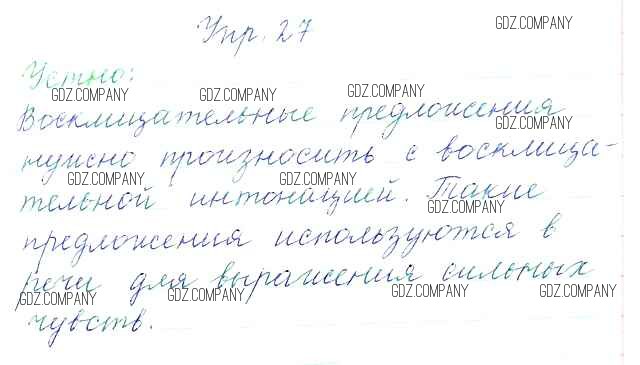 Упр. 27
Устно:
Восклицательные предложения
нужно произносить с восклица-
тельной интонацией. Такие
предложения используются в
речи для выражения сильных
чувств.
GDZ.COMPANY
GDZ.COMPANY
GDZ.COMPANY
GDZ.COMPANY
GDZ.COMPANY
GDZ.COMPANY
GDZ.COMPANY
GDZ.COMPANY
GDZ.COMPANY
GDZ.COMPANY
GDZ.COMPANY
GDZ.COMPANY
GDZ.COMPANY